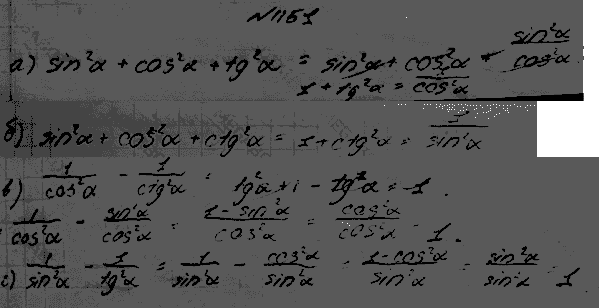 N1151
а) sin²α + cos²α + tg²α = sin²α + cos²α + sin²α/cos²α
1 + tg²α = 1/cos²α
б) sin²α + cos²α + ctg²α = 1 + ctg²α = 1/sin²α
в) 1/cos²α - 1/ctg²α = tg²α + 1 - tg²α = 1.
1/cos²α - sin²α/cos²α = 1 - sin²α/cos²α = cos²α/cos²α = 1.
г) 1/sin²α - 1/tg²α = 1/sin²α - cos²α/sin²α = 1 - cos²α/sin²α = sin²α/sin²α = 1